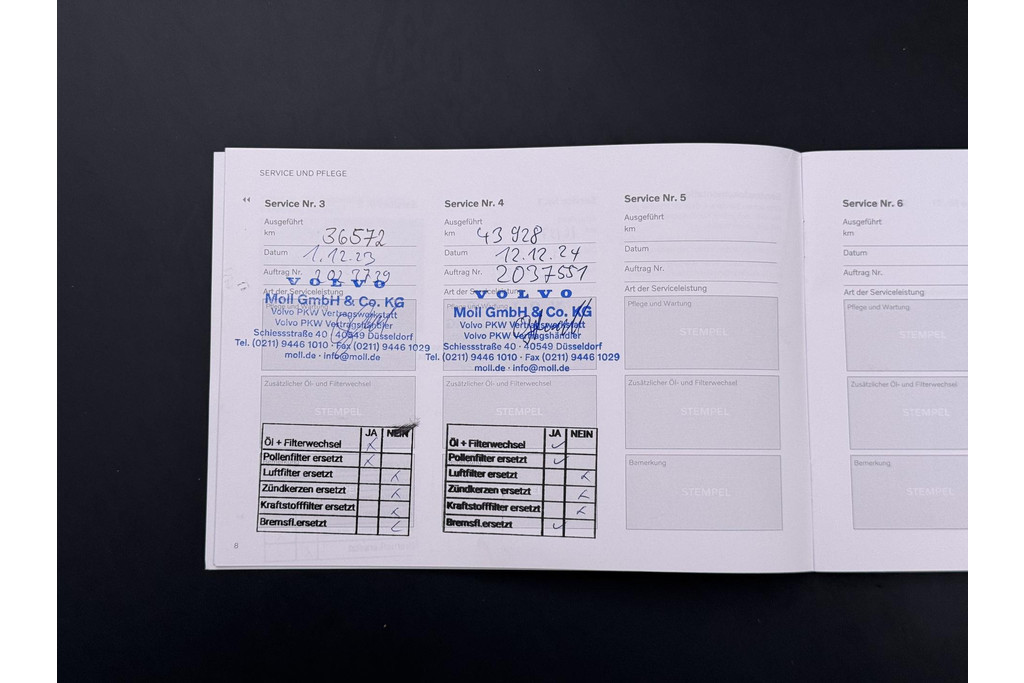 SERVICE UND PFLEGE
Service Nr. 3
Ausgeführt
km 36572
Datum 1.12.23
Auftrag Nr.
VOLVO
Moll GmbH & Co. KG
Pflege und Wartung
Volvo PKW Vertragswerkstatt
Volvo PKW Vertragshändler
Schiessstraße 40 · 40549 Düsseldorf
Tel. (0211) 9446 1010 · Fax (0211) 9446 1029
moll.de · info@moll.de
Zusätzlicher Öl- und Filterwechsel
STEMPEL
JA NEIN
Öl + Filterwechsel x
Pollenfilter ersetzt x
Luftfilter ersetzt x
Zündkerzen ersetzt x
Kraftstofffilter ersetzt x
Bremsfl.ersetzt
6
Service Nr. 4
Ausgeführt
km 43 928
Datum 12.12.24
Auftrag Nr. 2037551
Art der Serviceleistung
VOLVO
Moll GmbH & Co. KG
Volvo PKW Vertragswerkstatt
Volvo PKW Vertragshändler
Schiessstraße 40 · 40549 Düsseldorf
Tel. (0211) 9446 1010 · Fax (0211) 9446 1029
moll.de · info@moll.de
Zusätzlicher Öl- und Filterwechsel
STEMPEL
JA NEIN
Öl + Filterwechsel ✓
Pollenfilter ersetzt ✓
Luftfilter ersetzt x
Zündkerzen ersetzt x
Kraftstofffilter ersetzt x
Bremsfl.ersetzt ✓
Service Nr. 5
Ausgeführt
km
Datum
Auftrag Nr.
Art der Serviceleistung
Pflege und Wartung
STEMPEL
Zusätzlicher Öl- und Filterwechsel
STEMPEL
Bemerkung
STEMPEL
Service Nr. 6
Ausgeführt
km
Datum
Auftrag Nr.
Art der Serviceleistung
Pflege und Wartung
STEMPEL
Zusätzlicher Öl- und Filterwechsel
STEMPEL
Bemerkung
STEMPEL